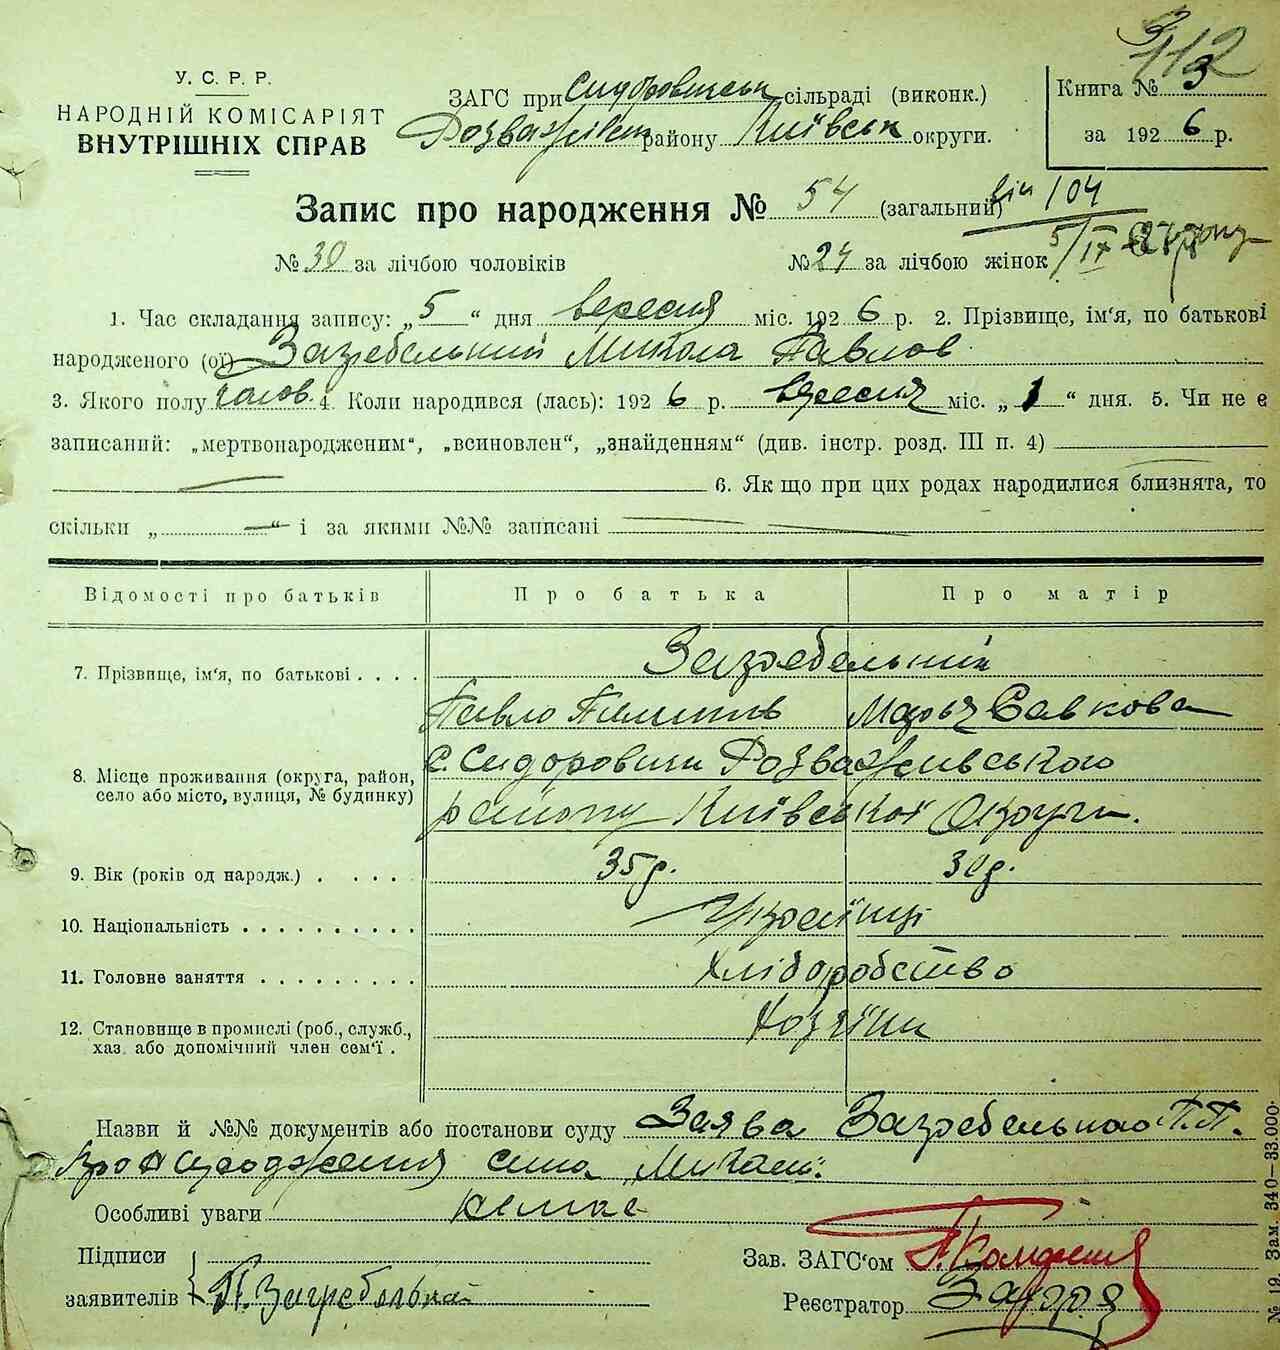 У. С. Р. Р.
НАРОДНІЙ КОМІСАРІЯТ
ВНУТРІШНІХ СПРАВ
112
ЗАГС при Сидоровицьк сільраді (виконк.)
Розважівськ району Київськ округи.
Книга № 3
за 1926 р.
Запис про народження № 54 (загальний)
104
№ 30 за лічбою чоловіків № 24 за лічбою жінок
5/IX
1. Час складання запису: „5“ дня вересня міс. 1926 р. 2. Прізвище, ім‘я, по батькові
народженого (ої) Загребельний Микола Павлов
3. Якого полу чолов. 4. Коли народився (лась): 1926 р. вересня міс. „1“ дня. 5. Чи не є
записаний: „мертвонародженим“, „всиновлен“, „знайденням“ (див. інстр. розд. III п. 4)
6. Як що при цих родах народилися близнята, то
скільки „ — “ і за якими №№ записані
Відомості про батьків Про батька Про матір
7. Прізвище, ім‘я, по батькові . . . . Загребельний
Павло Марья Савкова
8. Місце проживання (округа, район, с. Сидоровичи Розважівського
село або місто, вулиця, № будинку) району Київської Округи.
9. Вік (років од народж.) . . . . . 35 р. 30 р.
10. Національність . . . . . . . . . . Українці
11. Головне заняття . . . . . . . . . Хліборобство
12. Становище в промислі (роб., служб., Хозяїни
хаз. або допомічний член сем‘ї .
Назви й №№ документів або постанови суду Заява Загребельного П.П.
про народження сина Миколи.
Особливі уваги немає
Підписи Зав. ЗАГС‘ом
заявителів П. Загребельний Реєстратор
№ 19. Зам. 340—33.000.